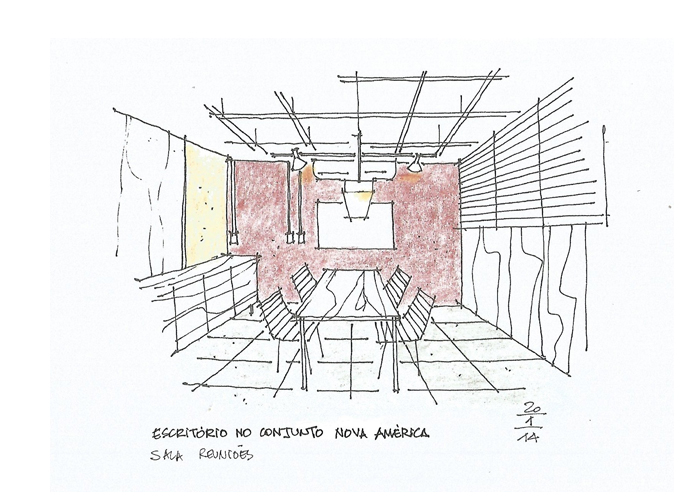 ESCRITÓRIO NO CONJUNTO NOVA AMÉRICA
SALA REUNIÕES
20
1
14